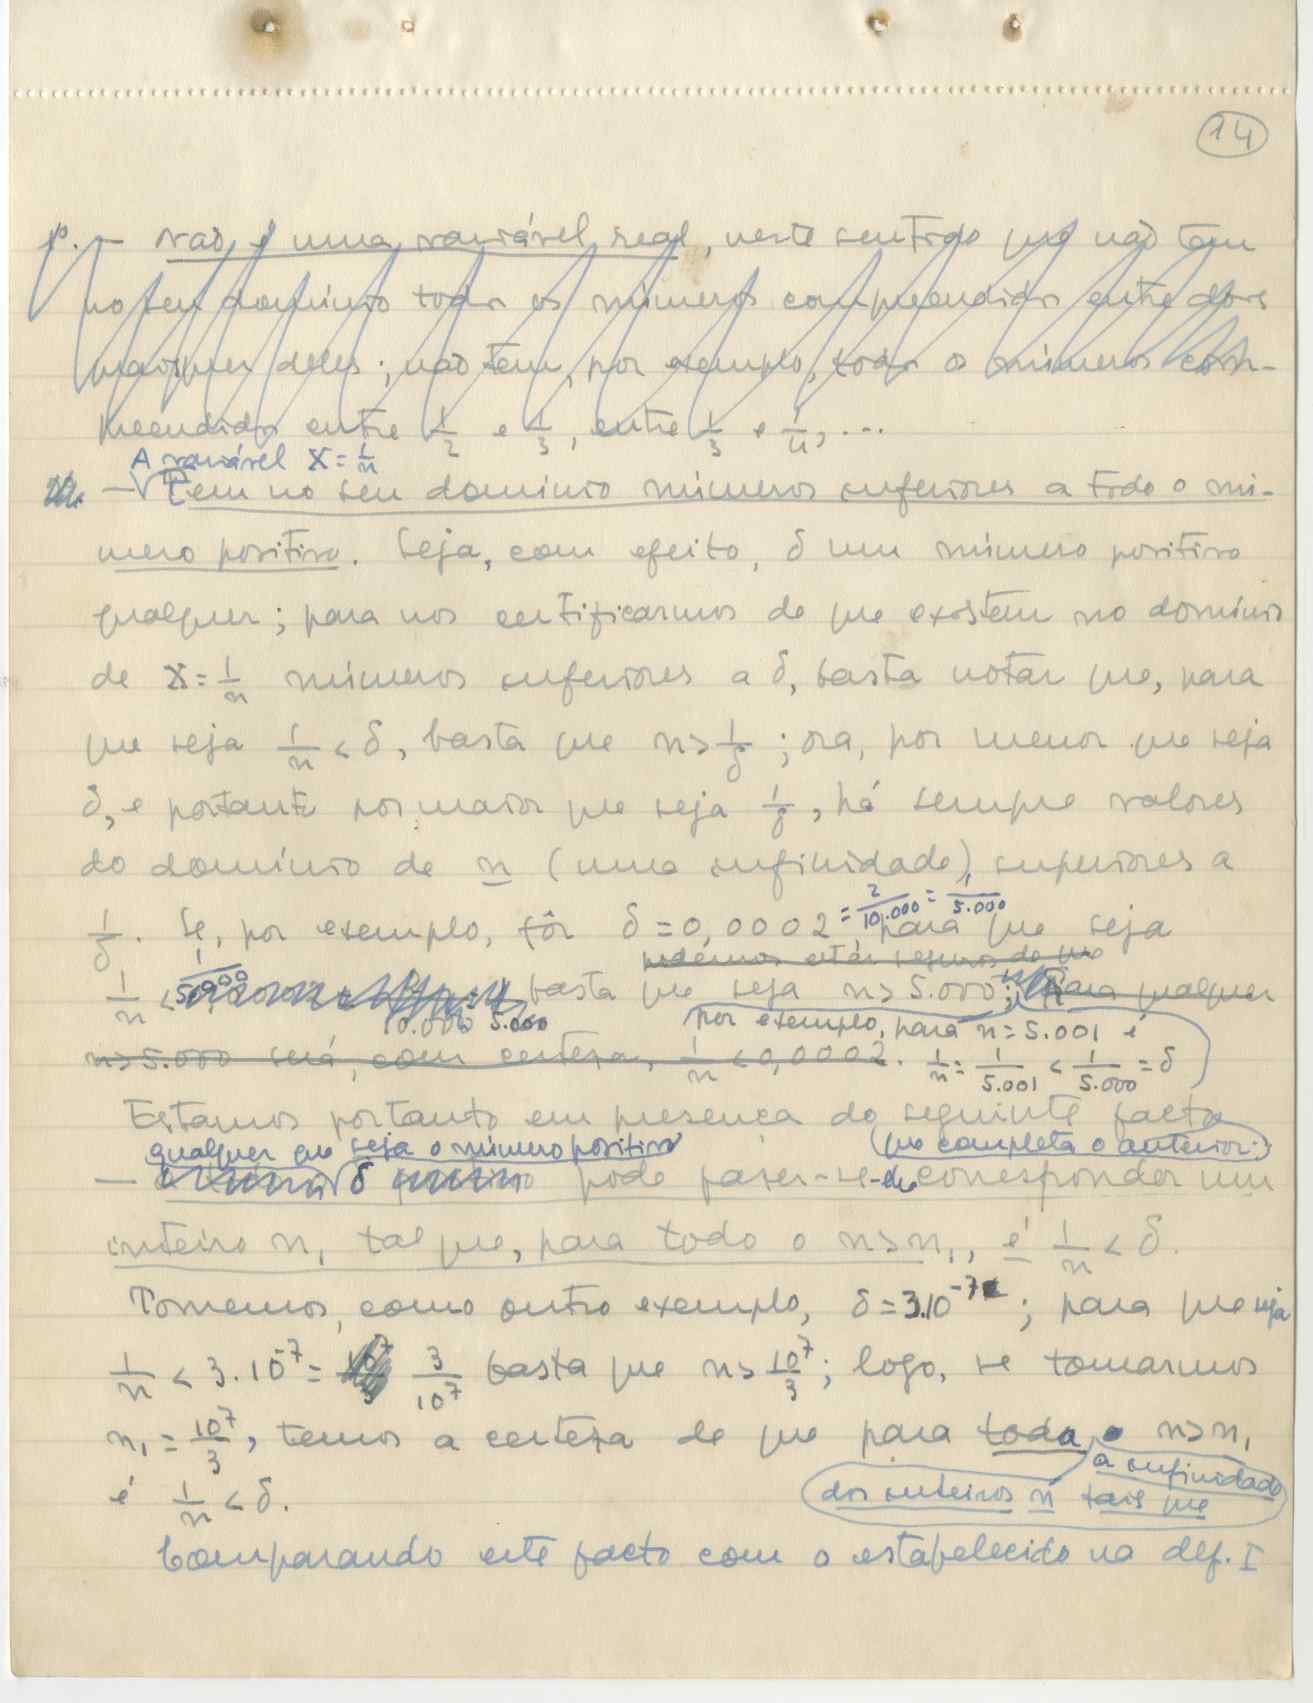 14
p. - não é uma variável real, neste sentido que não tem
no seu domínio todos os números compreendidos entre dois
quaisquer deles; não tem, por exemplo, todos os números com-
preendidos entre 1/2 e 1/3, entre 1/3 e 1/4, ...
A variável X = 1/n
- Tem no seu domínio números inferiores a todo o nú-
mero positivo. Seja, com efeito, δ um número positivo
qualquer; para nos certificarmos de que existem no domínio
de X = 1/n números inferiores a δ, basta notar que, para
que seja 1/n < δ, basta que n > 1/δ; ora, por menor que seja
δ, e portanto por maior que seja 1/δ, há sempre valores
do domínio de n (uma infinidade) superiores a
1/δ. Se, por exemplo, fôr δ = 0,0002 = 2/10.000 = 1/5.000, para que seja
podemos estar seguros de que
1/n < 1/5.000 basta que seja n > 5.000; para qualquer
10.000 5.000 por exemplo, para n = 5.001 é
n > 5.000 será, com certeza, 1/n < 0,0002. 1/n = 1/5.001 < 1/5.000 = δ
Estamos portanto em presença do seguinte facto
qualquer que seja o número positivo (que completa o anterior:)
- δ pode fazer-se-lhe corresponder um
inteiro n₁ tal que, para todo o n > n₁, é 1/n < δ.
Tomemos, como outro exemplo, δ = 3.10⁻⁷; para que seja
1/n < 3.10⁻⁷ = 3/10⁷ basta que n > 10⁷/3; logo, se tomarmos
n₁ = 10⁷/3, temos a certeza de que para toda n > n₁
a infinidade
é 1/n < δ. dos inteiros n tais que
Comparando este facto com o estabelecido na def. I